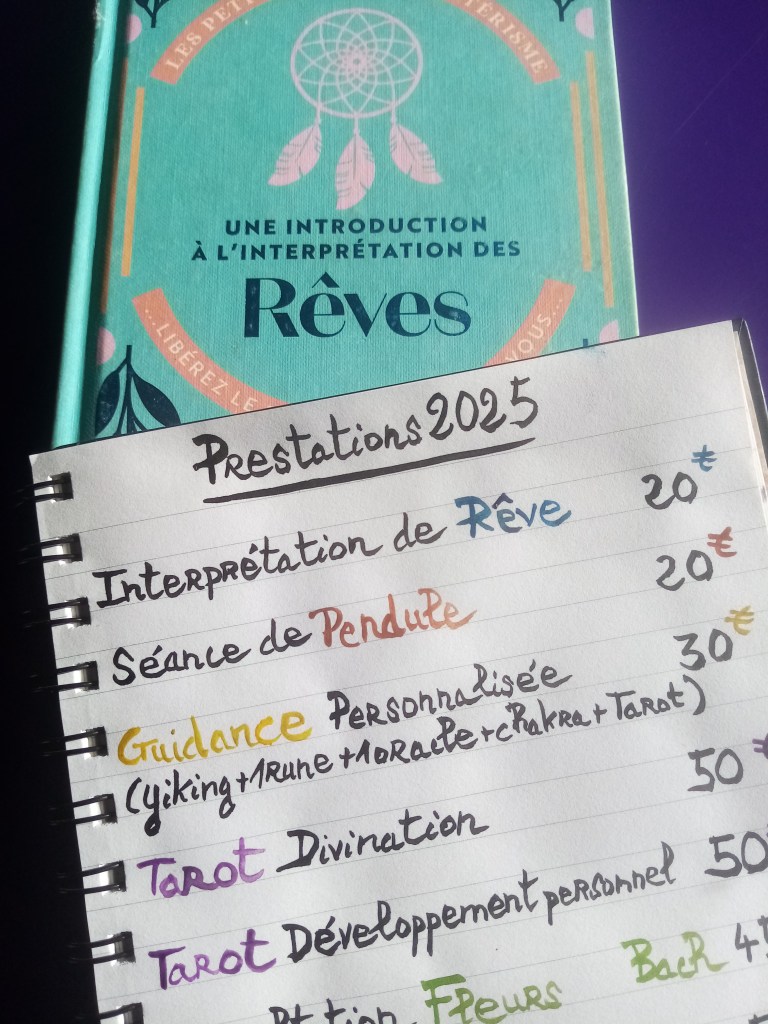 LES PETI
TÉRISME
UNE INTRODUCTION
À L'INTERPRÉTATION DES
Rêves
...LIBÉREZ LE
VOUS...
Prestations 2025
Interprétation de Rêve 20€
Séance de Pendule 20€
Guidance Personnalisée 30€
(yiking+1Rune+1oracle+chakra+Tarot)
Tarot Divination 50€
Tarot Développement personnel 50
Fleurs Bach 45